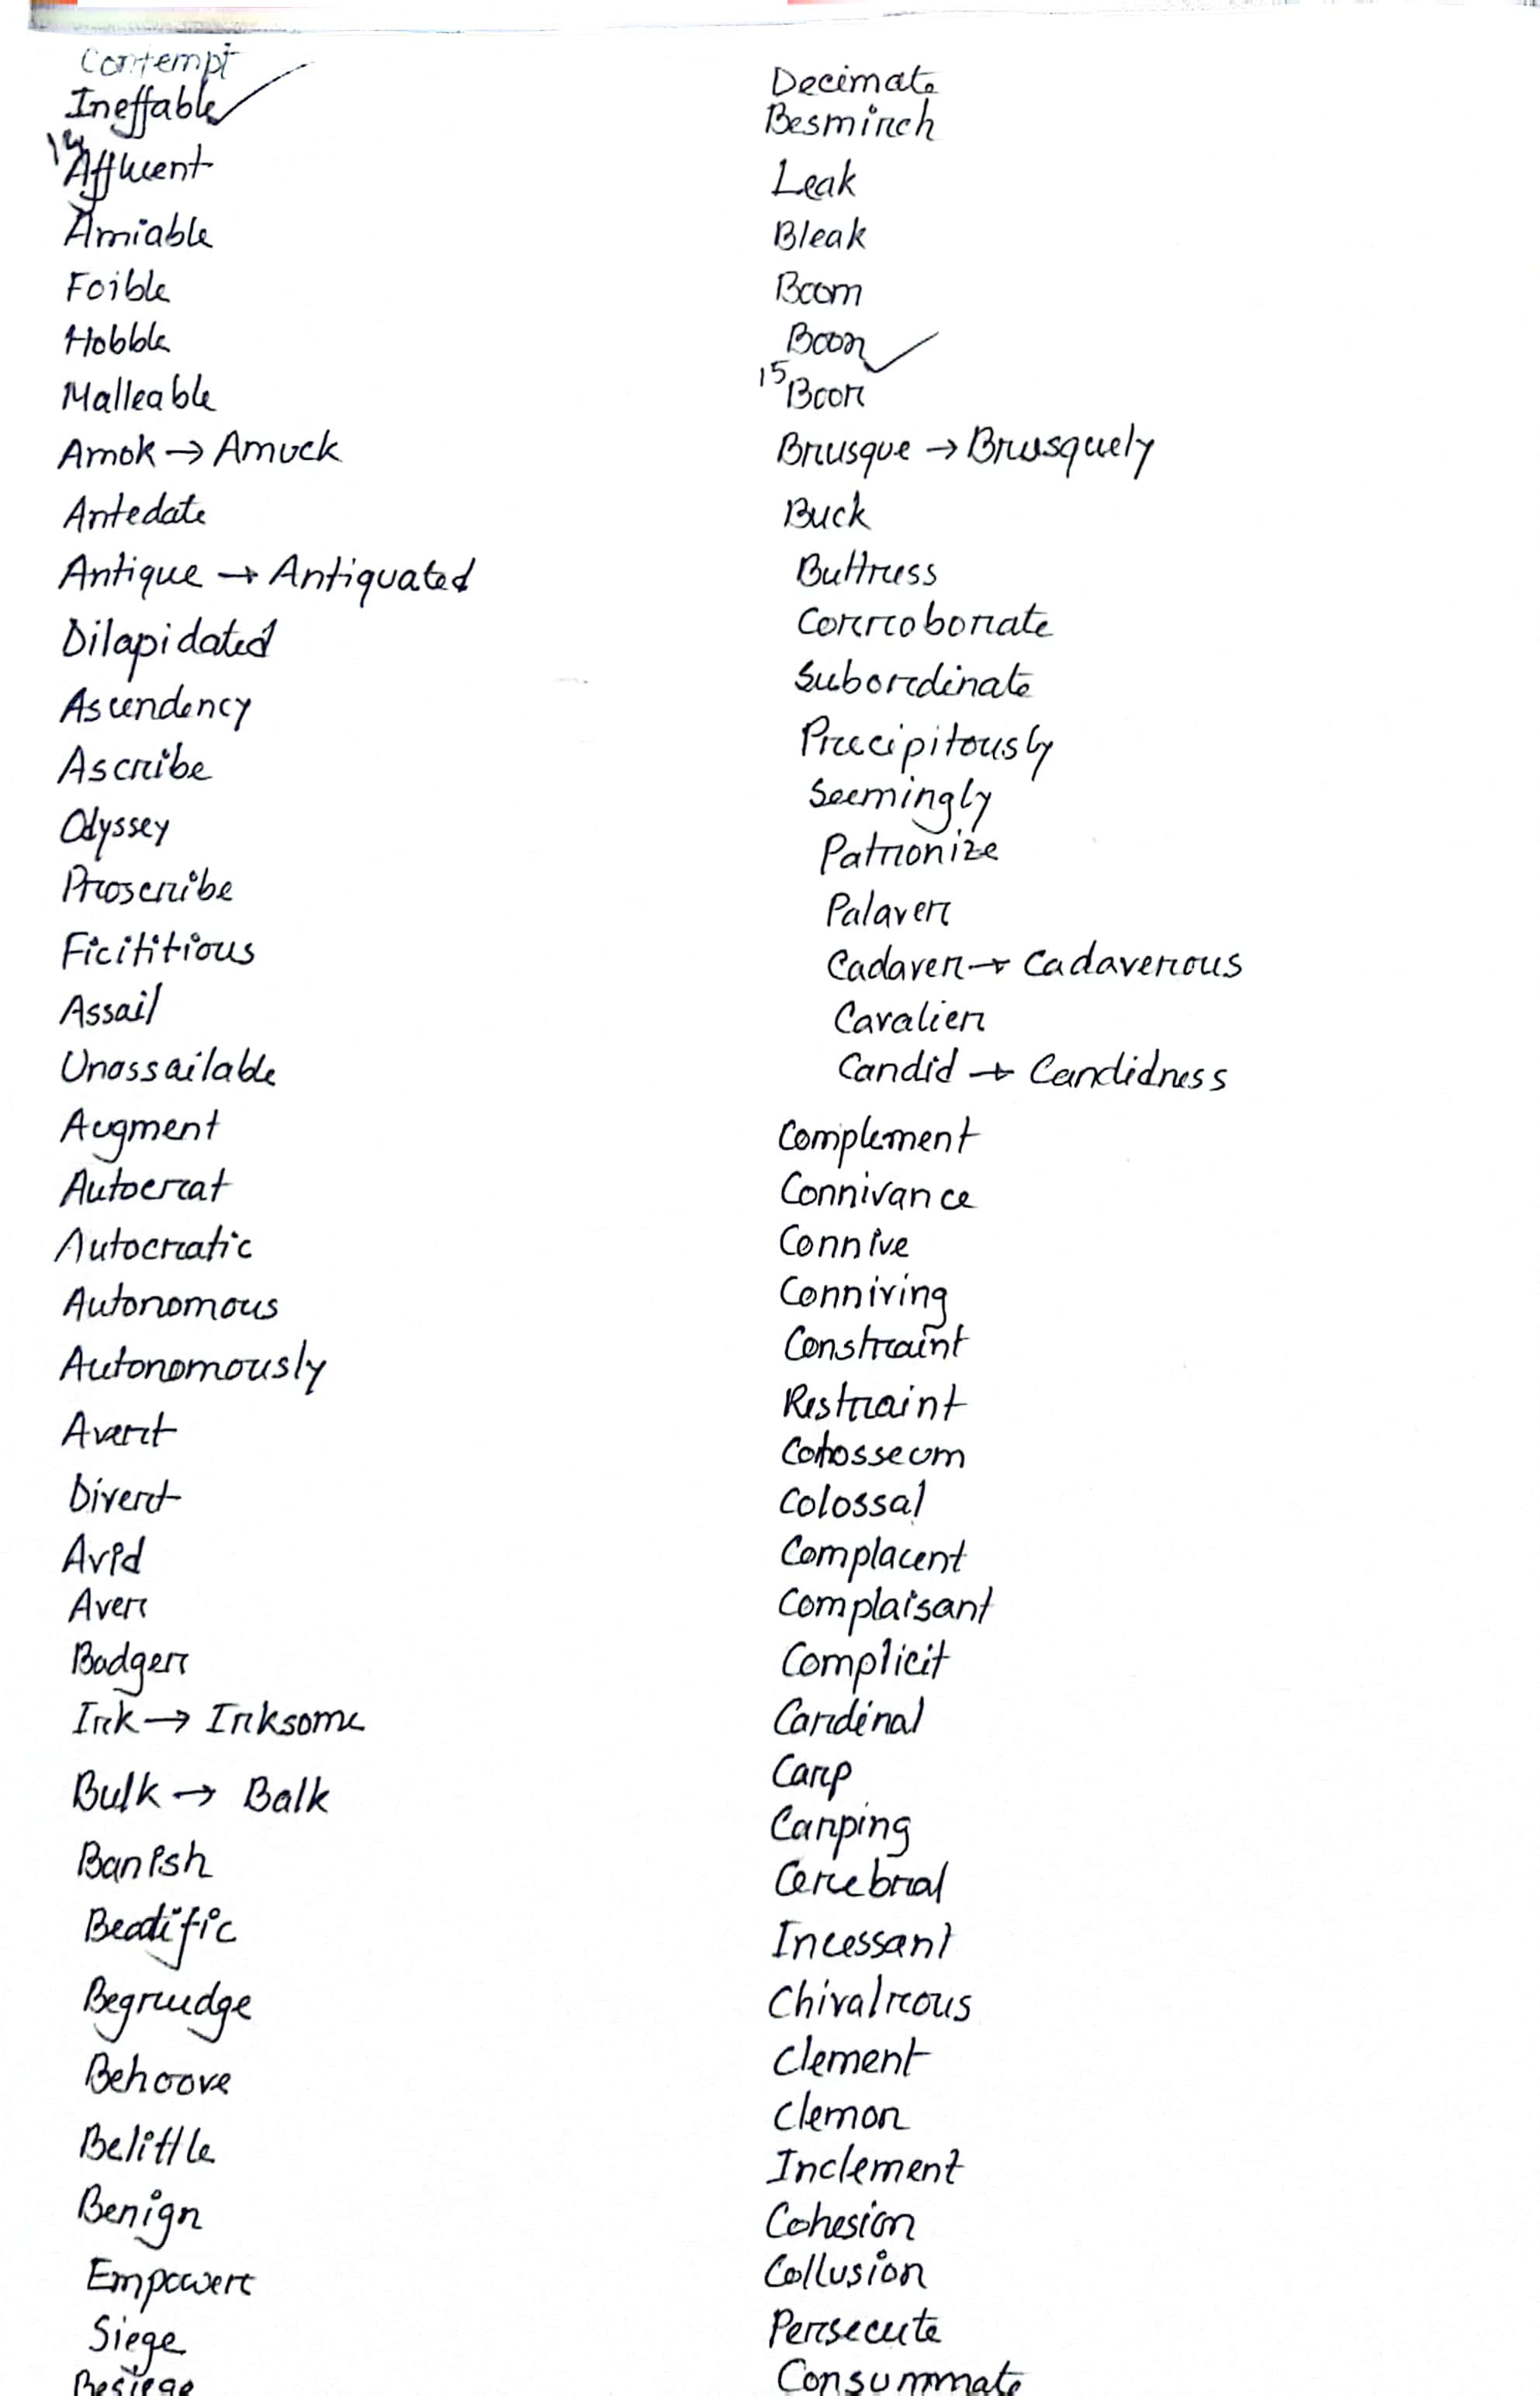 Contempt
Ineffable
14
Affluent
Amiable
Foible
Hobble
Malleable
Amok → Amuck
Antedate
Antique → Antiquated
Dilapidated
Ascendency
Ascribe
Odyssey
Proscribe
Ficititious
Assail
Unassailable
Augment
Autocrat
Autocratic
Autonomous
Autonomously
Avert
Divert
Avid
Aver
Badger
Irk → Irksome
Bulk → Balk
Banish
Beatific
Begrudge
Behoove
Belittle
Benign
Empower
Siege
Besiege
Decimate
Besmirch
Leak
Bleak
Boom
Boon
15
Boor
Brusque → Brusquely
Buck
Buttress
Corroborate
Subordinate
Precipitously
Seemingly
Patronize
Palaver
Cadaver → Cadaverous
Cavalier
Candid → Candidness
Complement
Connivance
Connive
Conniving
Constraint
Restraint
Colosseum
Colossal
Complacent
Complaisant
Complicit
Cardinal
Carp
Carping
Cerebral
Incessant
Chivalrous
Clement
Clemon
Inclement
Cohesion
Collusion
Persecute
Consummate